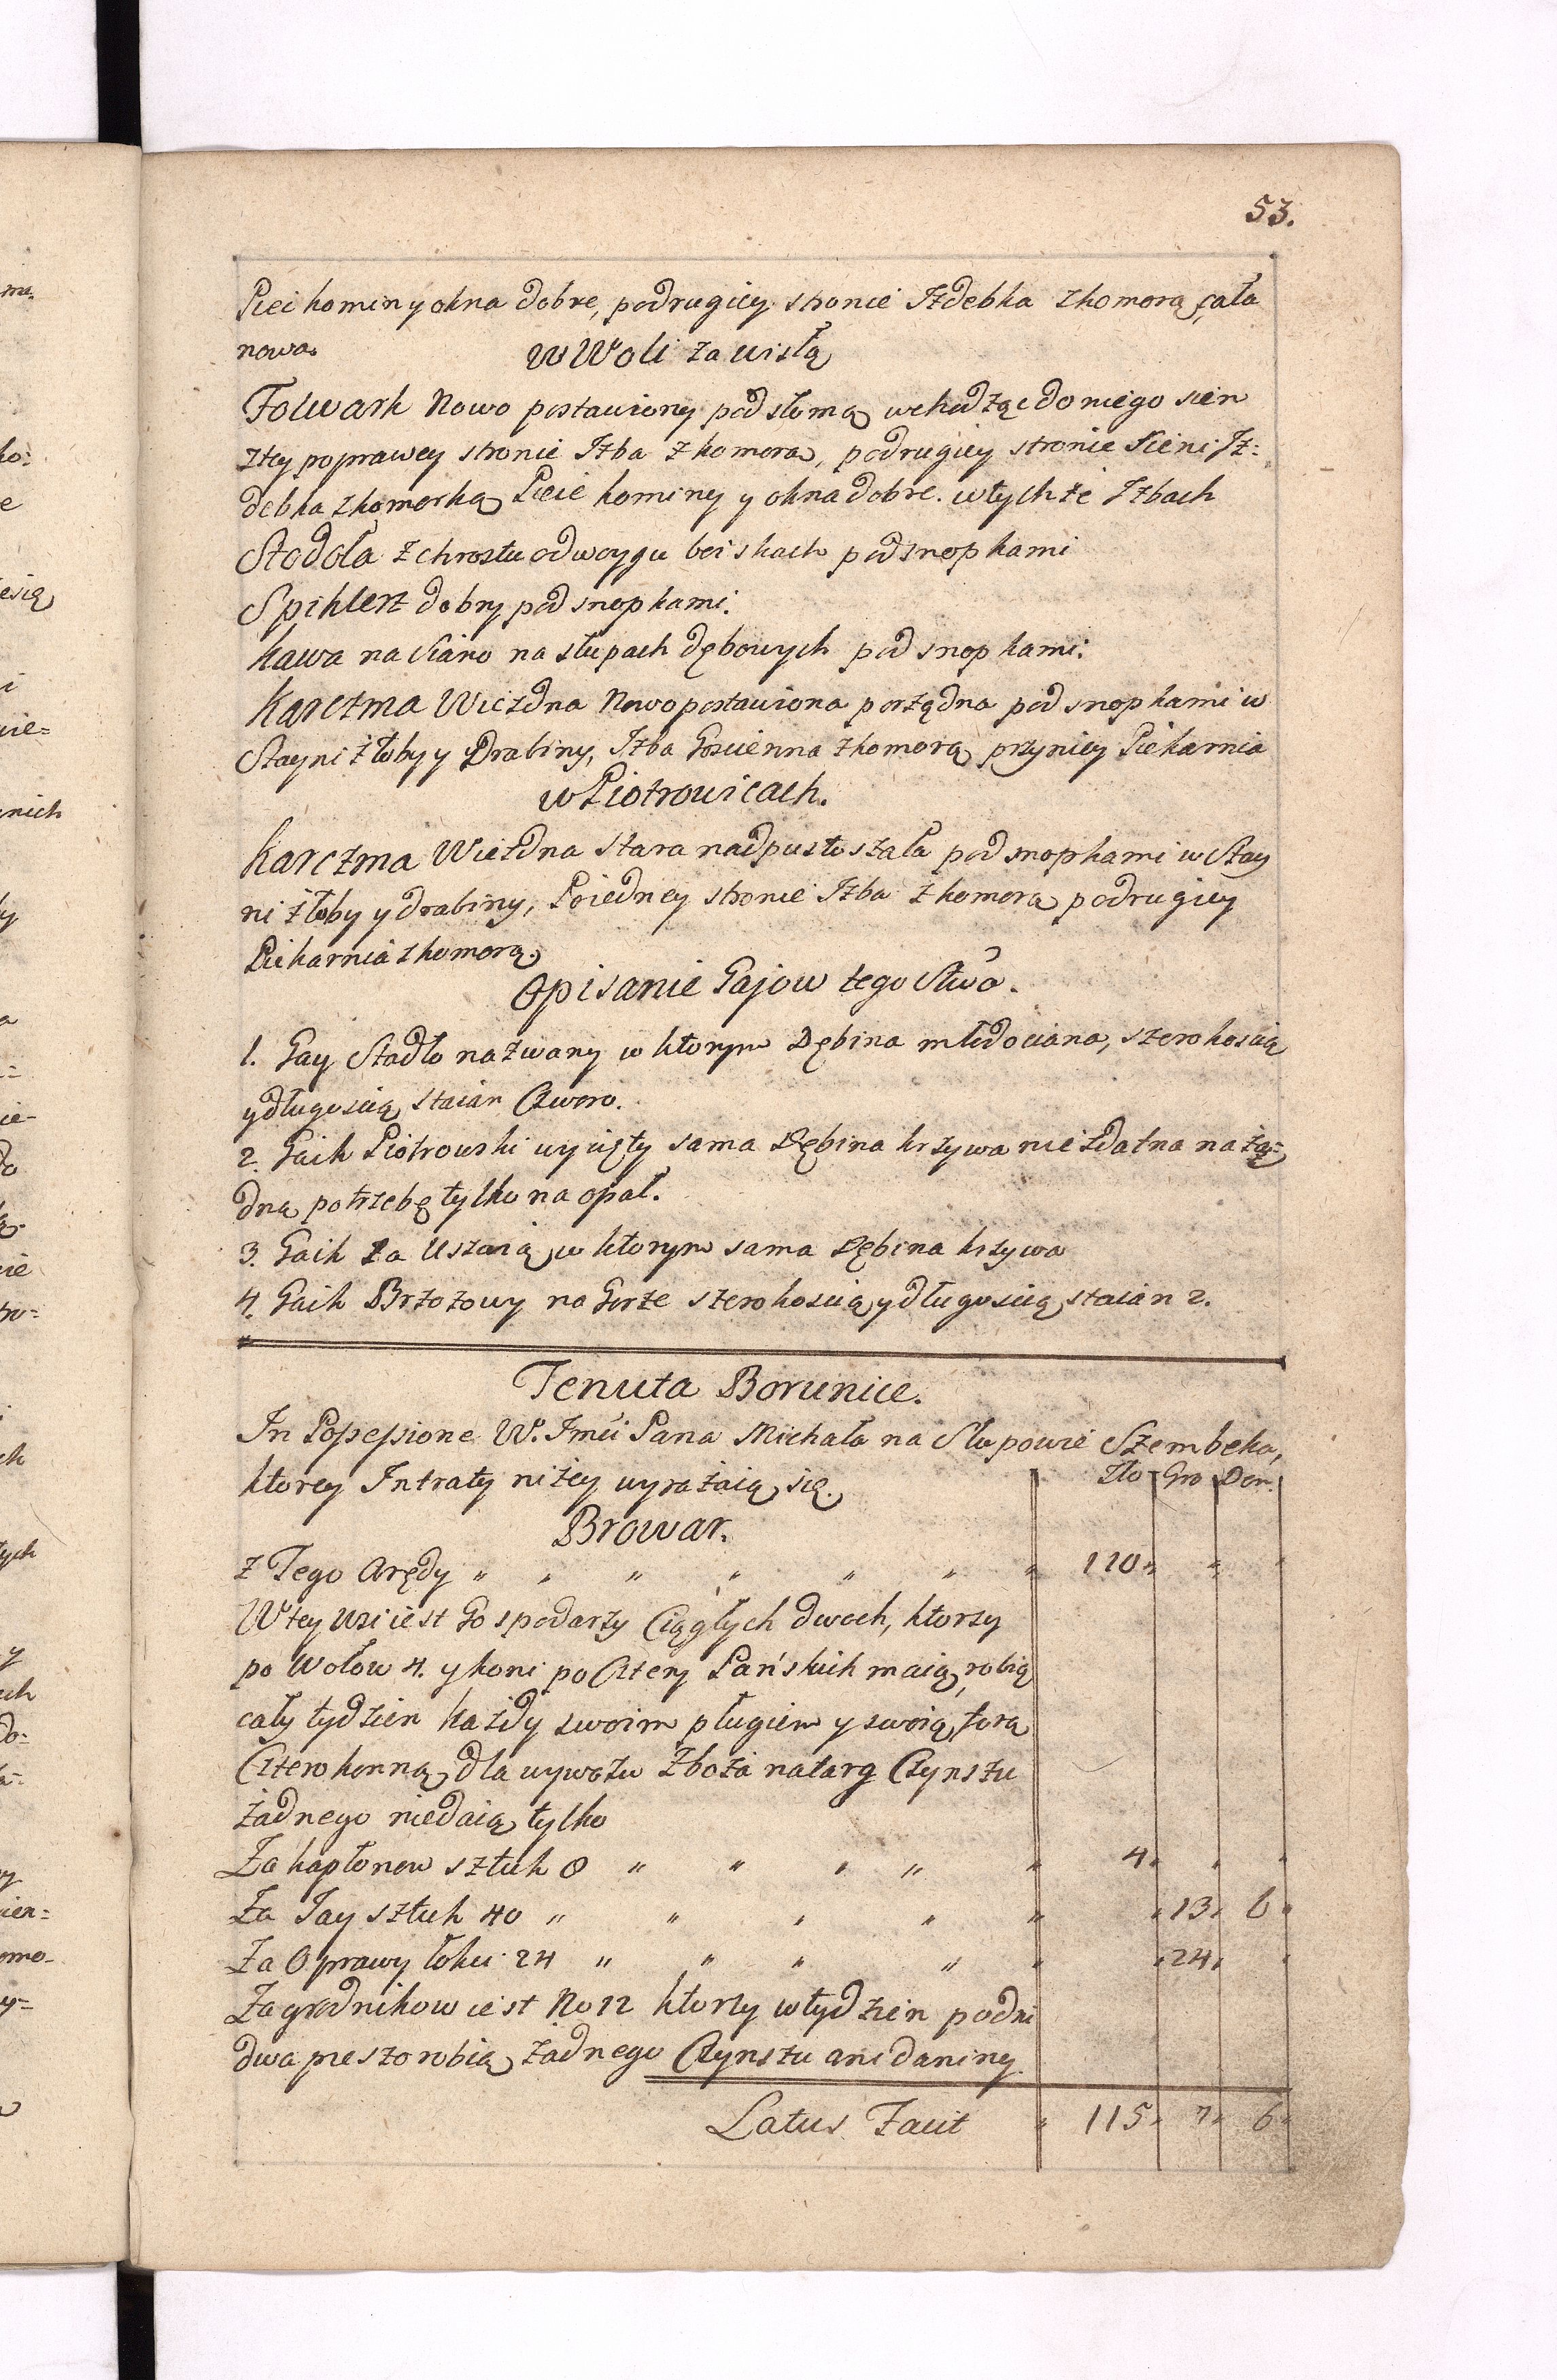 53.
Piec kominy okna dobre, podrugiey stronie Izdebka zkomorą cała
nowa.
w Woli za wisłą
Folwark Nowo postawiony pod słomą wchodząc doniego sien
ztey poprawey stronie Izba zkomorą, podrugiey stronie Sieni Iz:
debka zkomorką Piece kominy y okna dobre. wtychże Izbach
Stodoła z chrostu odwoygu boiskach pod snopkami
Spihlerz dobry pod snopkami.
kawa na Siano na słupach dębowych pod snopkami.
karczma Wiezdna Nowo postawiona porządna pod snopkami w
Stayni żłoby y Drabiny, Izba Goscienna zkomorą przyniey Piekarnia
w Piotrowicach.
karczma Wiezdna stara nadpustoszała pod snopkami w Stay
ni żłoby y drabiny, Poiedney stronie Izba zkomorą podrugiey
Piekarnia zkomorą.
Opisanie Gajow tego Stwa.
1. Gay Stadło nazwany w ktorym Dębina młodociana, szerokoscią
ydługoscią staian Czworo.
2. Gaik Piotrowski wycięty sama Dębina krzywa nie zdatna na żą:
dną potrzebę tylko na opał.
3. Gaik za Uszwią w ktorym sama Dębina krzywa
4. Gaik Brzozowy na Gorze szerokoscią ydługoscią staian 2.
Tenuta Borunice.
In Possessione W. Jmci Pana Michała na Słupowie Szembeka,
ktorey Intraty niżey wyrażaią się. Zło Gro Den.
Browar.
z Tego Arędy " " " " " " " 110 " " "
Wtey wsi iest Gospodarzy Ciągłych dwoch, ktorzy
po Wołow 4. y koni po Cztery Pańskich maią, robią
cały tydzien każdy swoim pługiem y swoią forą
Czterokonną dla wywozu Zboża natarg Czynszu
żadnego niedaią tylko
Za kapłonow sztuk 8 " " " " " 4 " " "
Za Jay sztuk 40 " " " " " " 13 " 6 "
Za Oprawy łokci 24 " " " " " " 24 " "
Zagrodnikow iest No 12 ktorzy wtydzien podni
dwa pieszo robią żadnego Czynszu ani daniny.
Latus Facit " 115 " 7 " 6 "